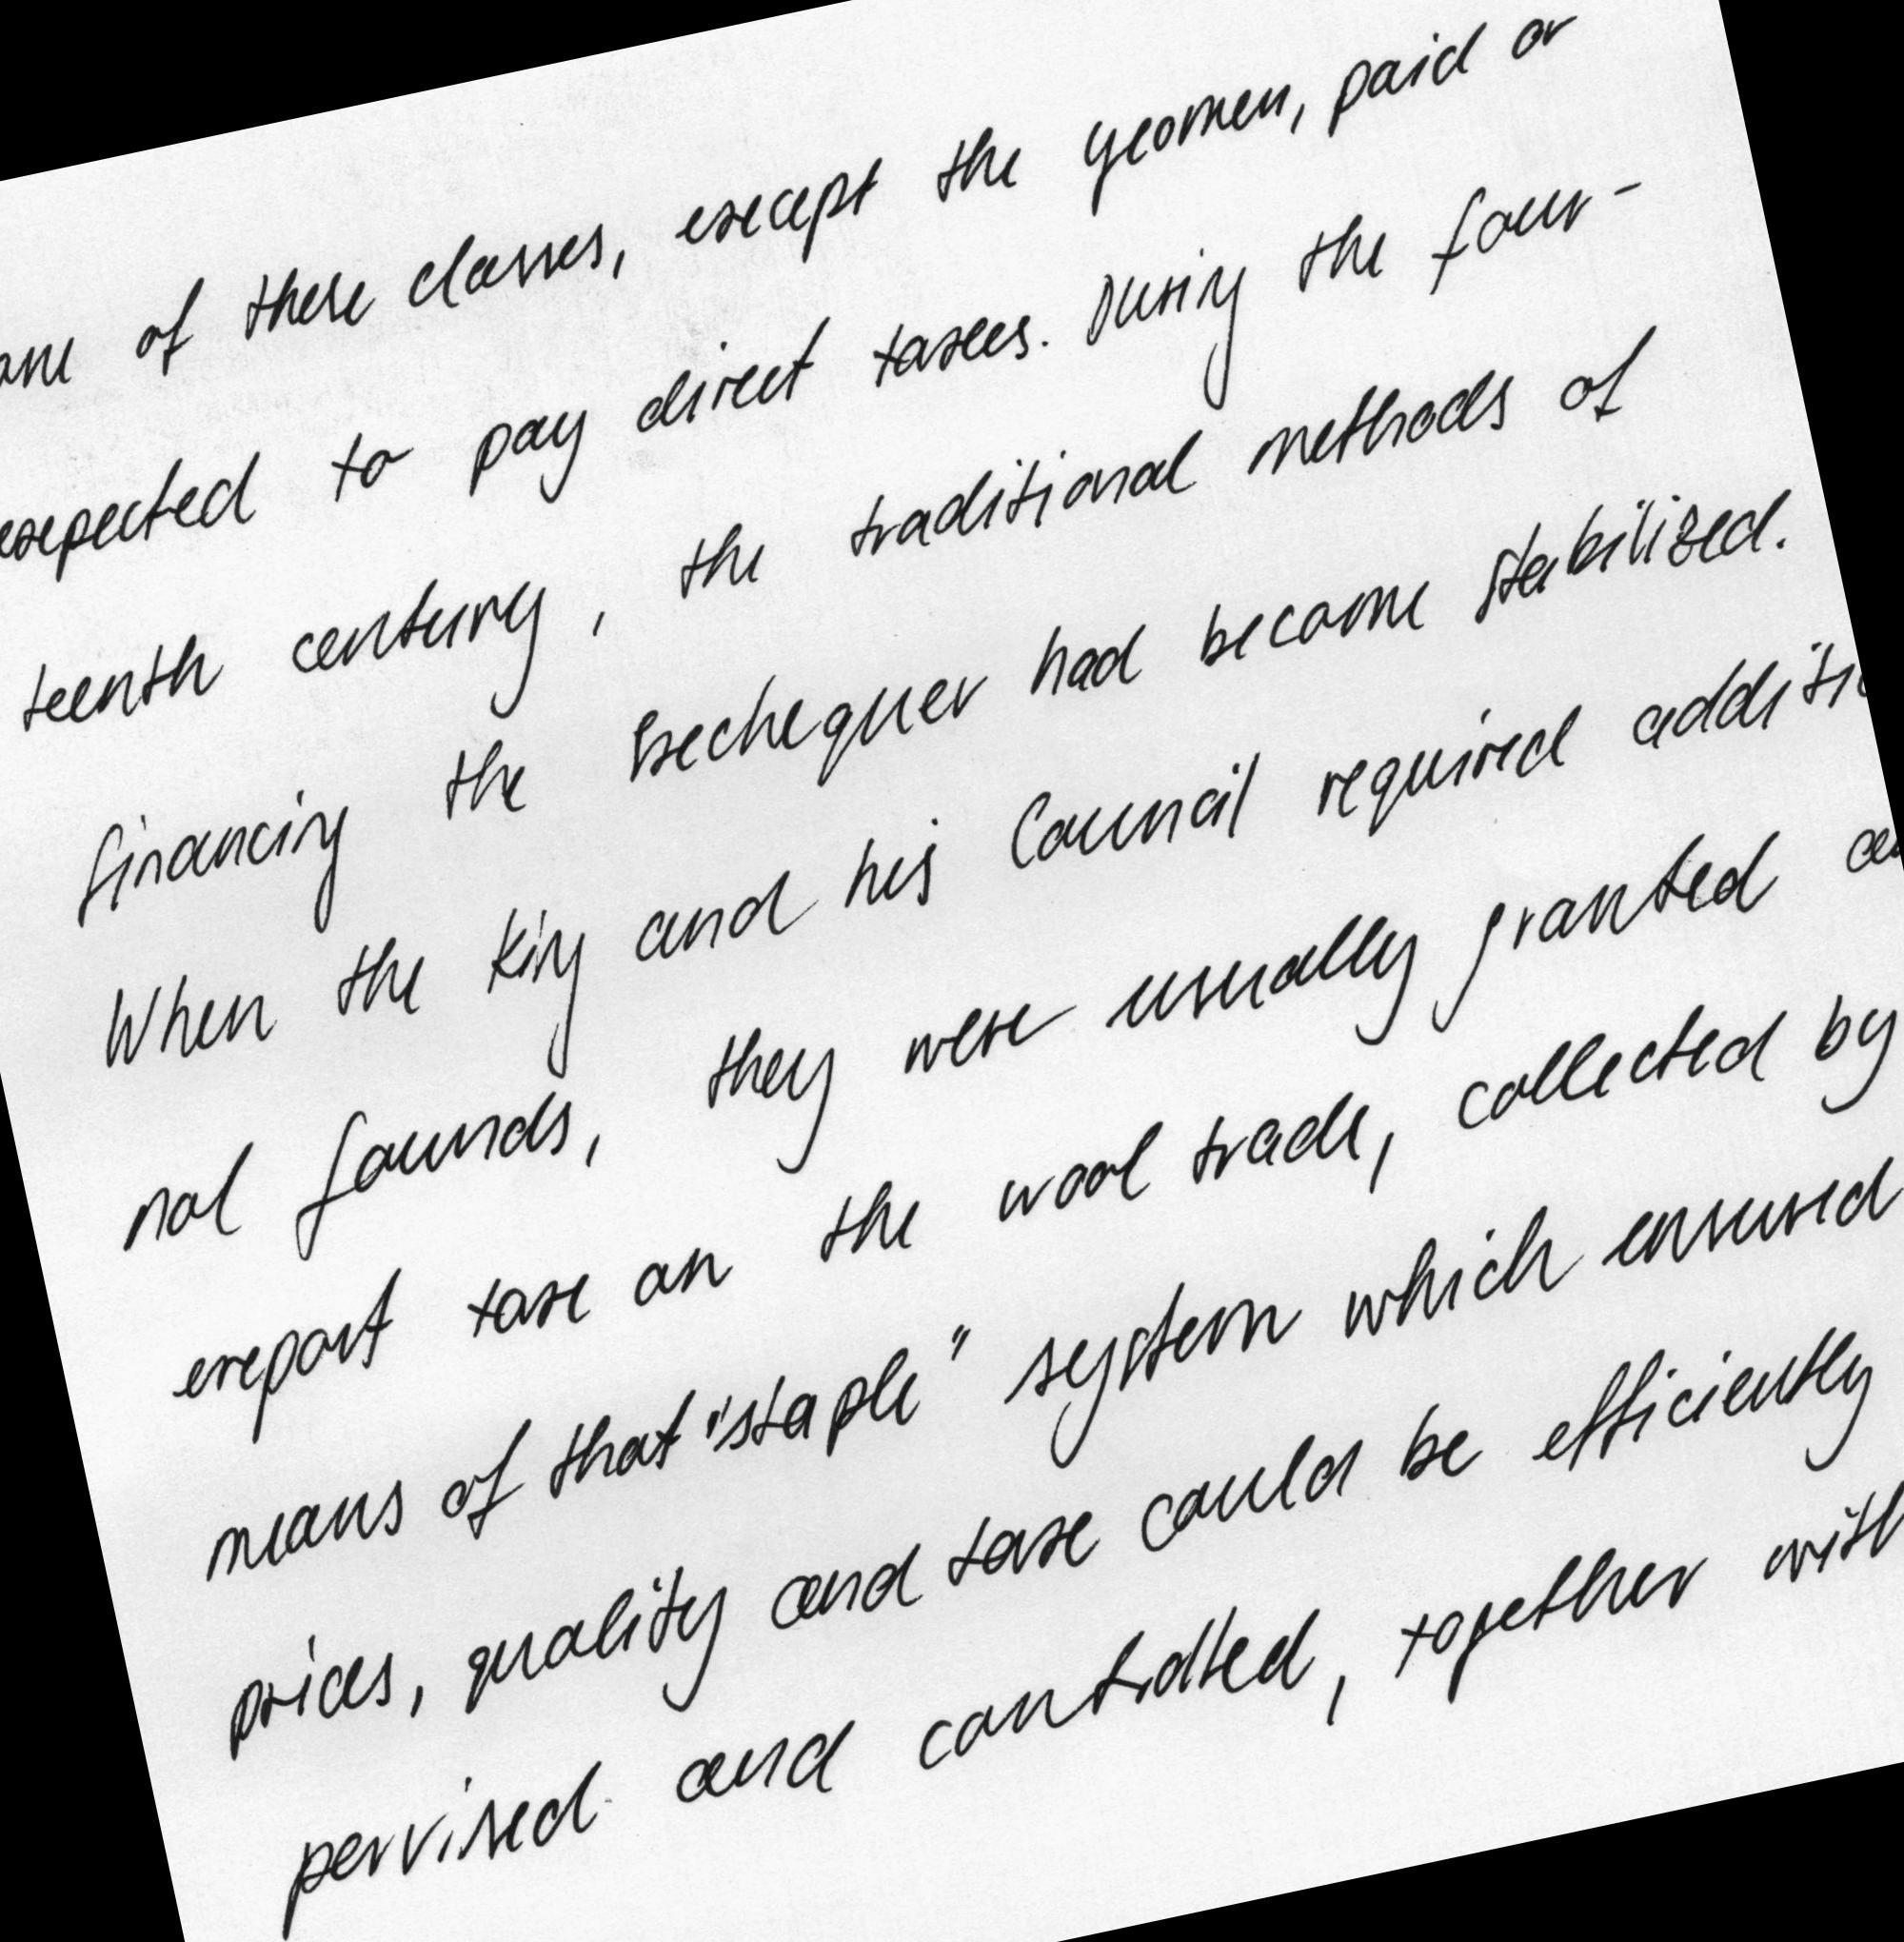 of these classes, except the yeomen, paid or
expected to pay direct taxes. During the four-
teenth century, the traditional methods of
financing the Exchequer had become stabilized.
When the King and his Council required additio
nal founds, they were usually granted
export taxe on the wool trade, collected by
means of that "staple" system which ensured
prices, quality and taxe could be efficiently
pervised and controlled, together with